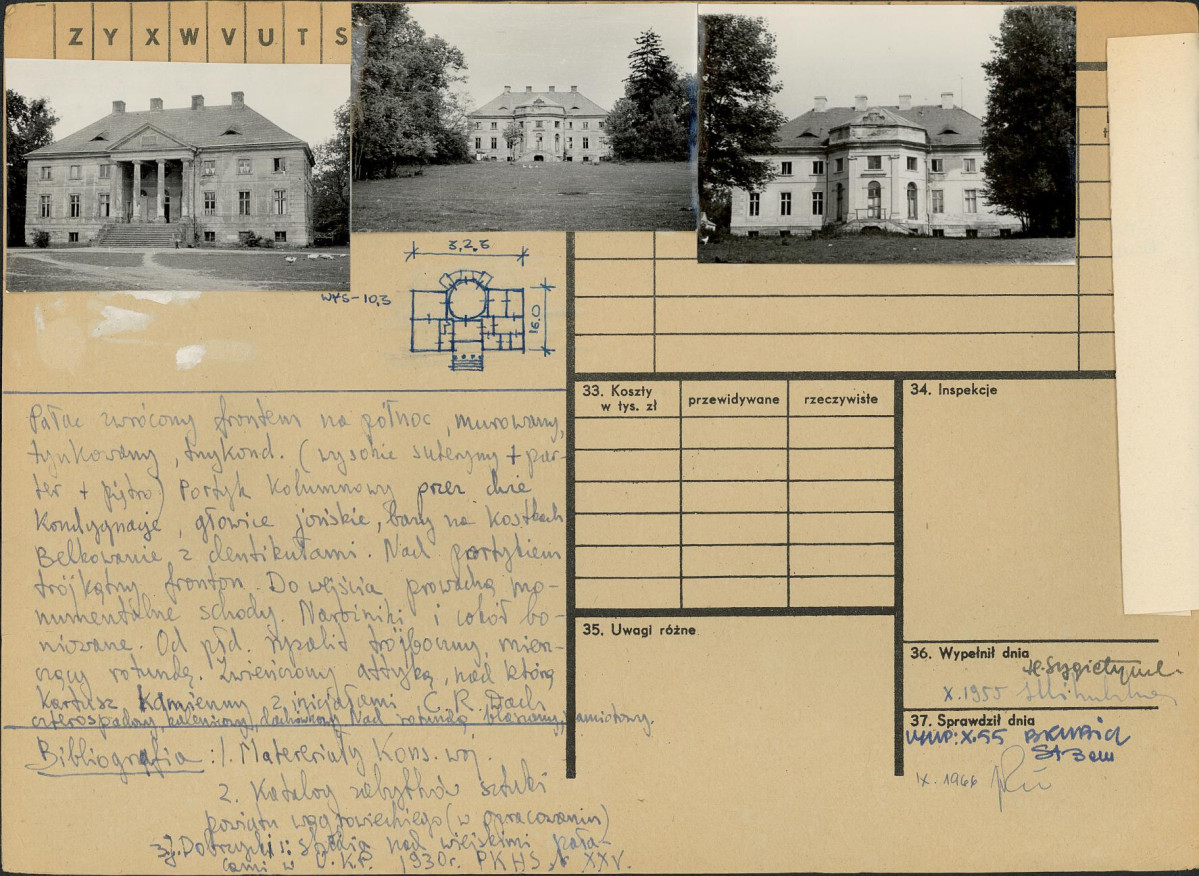 Z Y X W V U T S
3,2,6
wys - 10,3
16.0
Pałac zwrócony frontem na północ, murowany,
tynkowany, trzykond. (wysokie suteryny + par-
ter + piętro) Portyk kolumnowy przez dwie
kondygnacje, głowice jońskie, bazy na kostkach
Belkowanie z dentikułami. Nad portykiem
trójkątny fronton. Do wejścia prowadzą mo-
numentalne schody. Narożniki i cokół bo-
niowane. Od płd. ryzalit trójboczny, miesz-
czący rotundę. Zwieńczony attyką, nad którą
kartusz kamienny z inicjałami C. R. Dach
czterospadowy, kalenicowy, dachówkowy. Nad rotundą blaszany, namiotowy.
Bibliografia: 1. Materiały Kons. woj.
2. Katalog zabytków sztuki
powiatu wągrowieckiego (w opracowaniu)
3. J. Dobrzycki: Studia nad wiejskimi pała-
cami w 1930r. PKHS XXV.
33. Koszty
w tys. zł
przewidywane
rzeczywiste
34. Inspekcje
35. Uwagi różne
36. Wypełnił dnia
X.1955
37. Sprawdził dnia
X.55
IX.1966